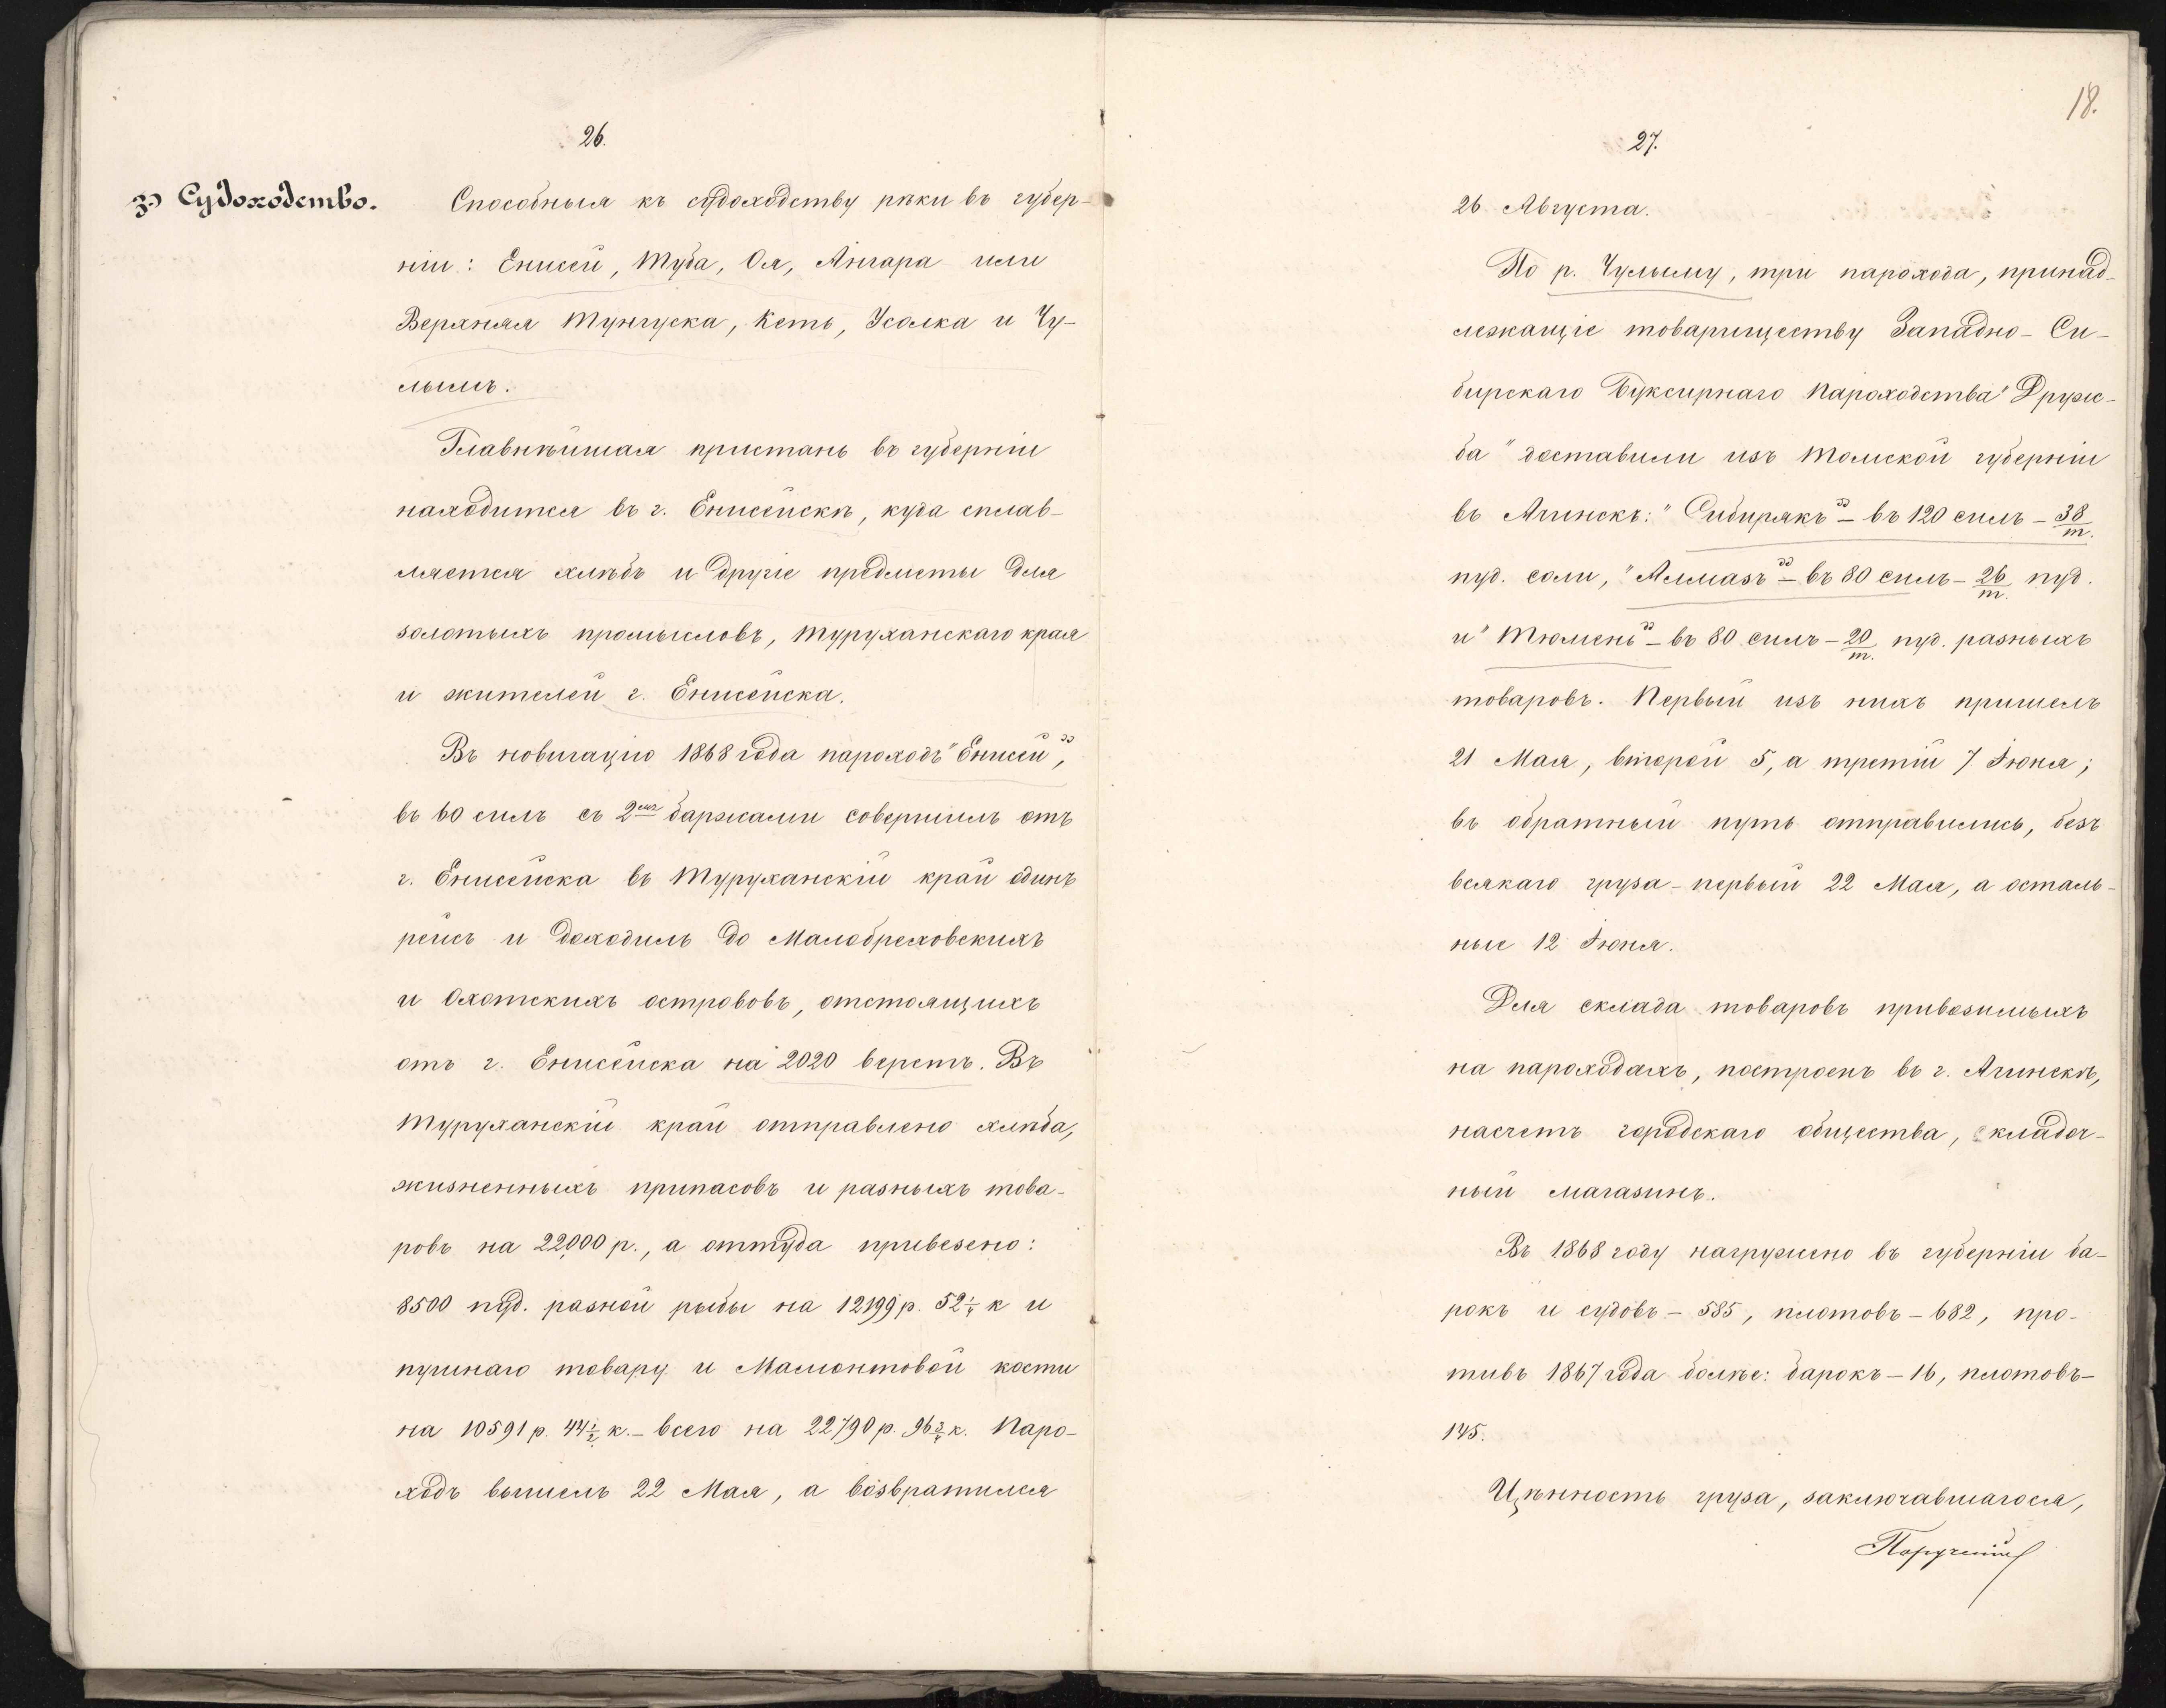 26.
з.) Судоходство.
Способныя къ судоходству рѣки въ губер-
ніи: Енисей, Туба, Оя, Ангара или
Верхняя Тунгуска, Кеть, Усолка и Чу-
лымъ.
Главнѣйшая пристань въ губерніи
находится въ г. Енисейскѣ, куда сплав-
ляется хлѣбъ и другіе предметы для
золотыхъ промысловъ, Туруханскаго края
и жителей г. Енисейска.
Въ новигацію 1868 года пароходъ "Енисей",
въ 60 силъ съ 2мя баржами совершилъ отъ
г. Енисейска въ Туруханскій край одинъ
рейсъ и доходилъ до Малобреховскихъ
и Охотскихъ острововъ, отстоящихъ
отъ г. Енисейска на 2020 верстъ. Въ
Туруханскій край отправлено хлѣба,
жизненныхъ припасовъ и разныхъ това-
ровъ на 22,000 р., а оттуда привезено:
8500 пуд. разной рыбы на 12199 р. 52 1/4 к и
пушнаго товару и Мамонтовой кости
на 10591 р. 44 1/2 к. – всего на 22790 р. 96 3/4 к. Паро-
ходъ вышелъ 22 Мая, а возвратился
18.
27.
26 Августа.
По р. Чулыму, три парохода, принад-
лежащіе товариществу Западно-Си-
бирскаго Буксирнаго Пароходства "Друж-
ба" доставили изъ Томской губерніи
въ Ачинскъ: "Сибирякъ" – въ 120 силъ – 38/т.
пуд. соли, "Алмазъ" – въ 80 силъ – 26/т. пуд.
и "Тюмень" – въ 80 силъ – 20/т. пуд. разныхъ
товаровъ. Первый изъ нихъ пришелъ
21 Мая, второй 5, а третій 7 Іюня;
въ обратный путь отправились, безъ
всякаго груза – первый 22 Мая, а осталь-
ные 12 Іюня.
Для склада товаровъ привозимыхъ
на пароходахъ, построенъ въ г. Ачинскѣ,
насчетъ городскаго общества, складоч-
ный магазинъ.
Въ 1868 году нагружено въ губерніи ба-
рокъ и судовъ – 585, плотовъ – 682, про-
тивъ 1867 года болѣе: барокъ – 16, плотовъ –
145.
Цѣнность груза, заключавшагося,